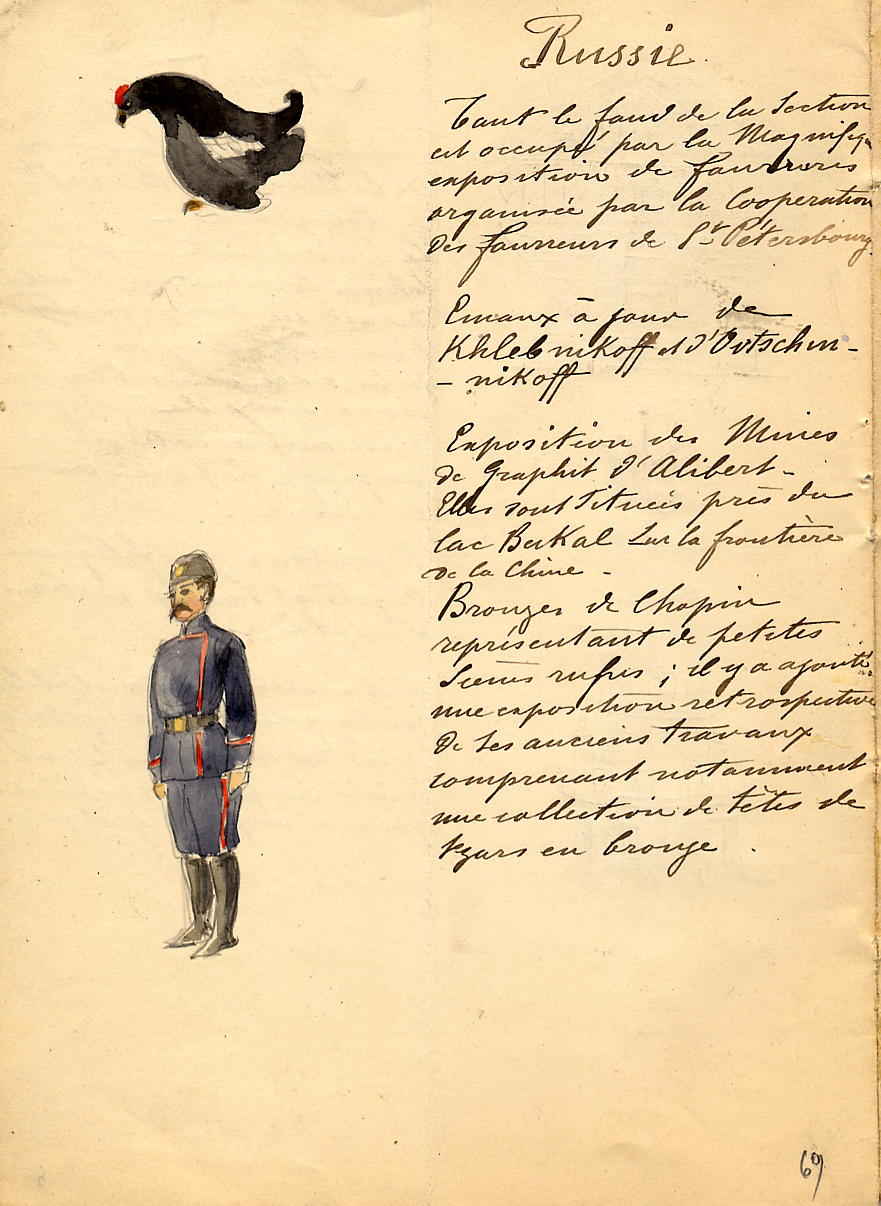 Russie
Tout le fond de la Section
est occupé par la Magnifiq.
exposition de fourrures
organisée par la Cooperation
des fourreurs de St Pétersbourg.
Emaux à jour de
Khlebnikoff et d'Ovtschin-
- nikoff
Exposition des Mines
de Graphit d'Alibert -
Elles sont situées près du
lac Baïkal sur la frontière
de la Chine -
Bronzes de Chopin
représentant de petites
Scènes rufses ; il y a ajouté
une exposition retrospective
de ses anciens travaux
comprenant notamment
une collection de têtes de
tzars en bronze .
69